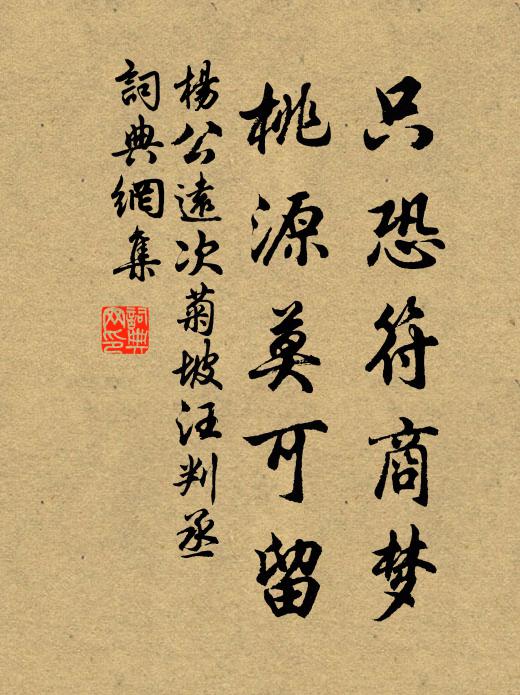 只恐符商梦
桃源莫可留
楊公遠次菊坡汪判丞
詞典網集
詞典
网印